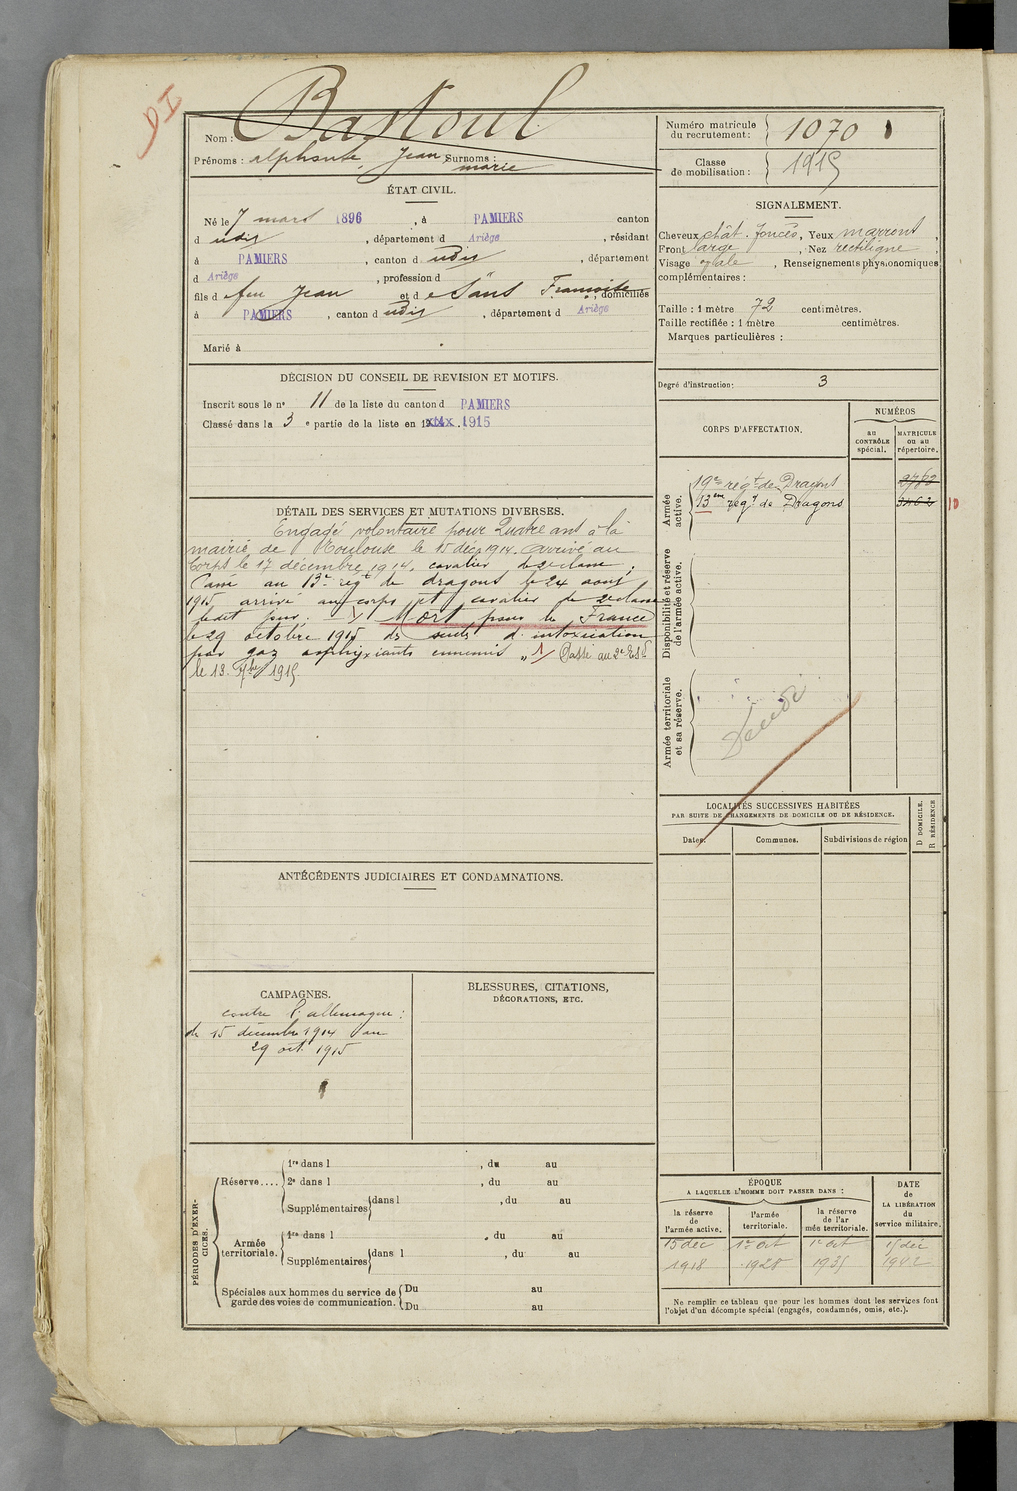 DI
Nom : Bastoul
Prénoms : alphonse, Jean Surnoms :
marie
Numéro matricule du recrutement : 1070
Classe de mobilisation : 1915
ÉTAT CIVIL.
Né le 7 mars 1896, à PAMIERS canton
d udis, département d Ariège, résidant
à PAMIERS, canton d udis, département
d Ariège, profession d
fils d e feu Jean et d e Sans Françoise, domiciliés
à PAMIERS, canton d udis, département d Ariège
Marié à
SIGNALEMENT.
Cheveux chât. foncés, Yeux marrons,
Front large, Nez rectiligne
Visage ovale, Renseignements physionomiques
complémentaires :
Taille : 1 mètre 72 centimètres.
Taille rectifiée : 1 mètre centimètres.
Marques particulières :
Degré d'instruction: 3
DÉCISION DU CONSEIL DE REVISION ET MOTIFS.
Inscrit sous le n° 11 de la liste du canton d PAMIERS
Classé dans la 3 e partie de la liste en 1915
CORPS D'AFFECTATION.
NUMÉROS
au CONTRÔLE spécial.
MATRICULE ou au répertoire.
Armée active.
19e régt. de Dragons
13em regt de Dragons 10
Disponibilité et réserve de l'armée active.
Armée territoriale et sa réserve.
DÉTAIL DES SERVICES ET MUTATIONS DIVERSES.
Engagé volontaire pour Quatre ans à la
mairie de Toulouse le 15 déce 1914. arrivé au
corps le 17 décembre 1914. cavalier de 2e classe.
Passé au 13e régt de dragons le 24 aout
1915 arrivé au corps et cavalier de 2e classe
ledit jour. Mort pour la France
le 29 octobre 1915 des suites d'intoxication
par gaz asphyxiants ennemis „ 1/ Passé au 2e
le 13. 1915.
LOCALITÉS SUCCESSIVES HABITÉES
PAR SUITE DE CHANGEMENTS DE DOMICILE OU DE RÉSIDENCE.
Dates. Communes. Subdivisions de région
D DOMICILE. R RÉSIDENCE
ANTÉCÉDENTS JUDICIAIRES ET CONDAMNATIONS.
CAMPAGNES.
contre l'allemagne :
du 15 décembre 1914 au
29 oct. 1915
BLESSURES, CITATIONS,
DÉCORATIONS, ETC.
PÉRIODES D'EXERCICES.
Réserve....
1re dans l , du au
2e dans l , du au
Supplémentaires dans l , du au
Armée territoriale.
1re dans l , du au
Supplémentaires dans l , du au
Spéciales aux hommes du service de garde des voies de communication.
Du au
Du au
ÉPOQUE
A LAQUELLE L'HOMME DOIT PASSER DANS :
la réserve de l'armée active.
l'armée territoriale.
la réserve de l'ar mée territoriale.
DATE de LA LIBÉRATION du service militaire.
15 déc 1er oct 1er oct 15 déc
1918 1928 1935 1942
Ne remplir ce tableau que pour les hommes dont les services font
l'objet d'un décompte spécial (engagés, condamnés, omis, etc.).